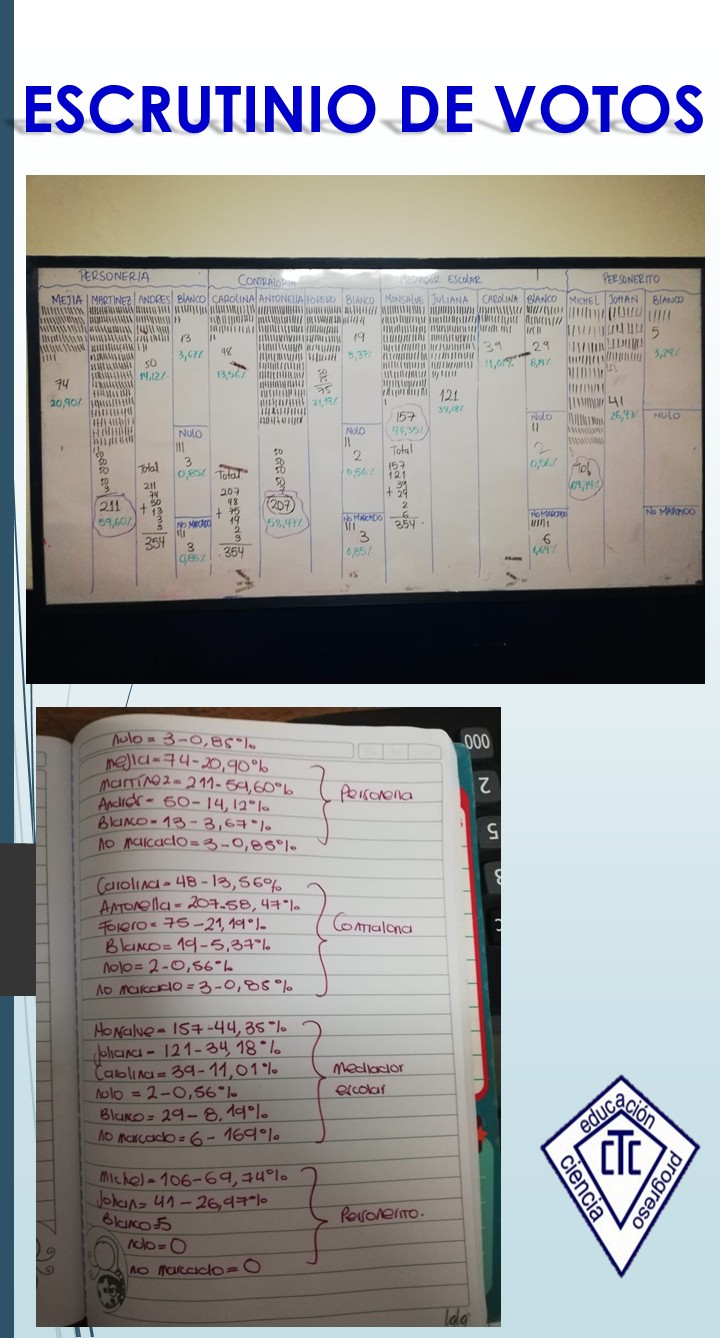 ESCRUTINIO DE VOTOS
PERSONERIA CONTRALORIA MEDIADOR ESCOLAR PERSONERITO
MEJIA MARTINEZ ANDRES BLANCO CAROLINA ANTONELLA FORERO BLANCO MONSALVE JULIANA CAROLINA BLANCO MICHEL JOHAN BLANCO
74
20,90%
50
50
50
50
211
59,60%
50
14,12%
Total
211
74
50
+ 13
3
3
354
13
3,67%
NULO
3
0,85%
NO MARCADO
3
0,85%
48
13,56%
Total
207
48
+ 75
19
2
3
354
50
50
50
50
7
207
58,47%
75
21,19%
19
5,37%
NULO
2
0,56%
NO MARCADO
3
0,85%
157
44,35%
Total
157
121
39
+ 29
2
6
354
121
34,18%
39
11,01%
29
8,19%
NULO
2
0,56%
NO MARCADO
6
1,69%
106
69,74%
41
26,97%
5
3,29%
NULO
NO MARCADO
Nulo = 3-0,85%
Mejia=74-20,90%
Martinez=211-59,60%
Andrés= 50-14,12%
Blanco=13-3,67%
no marcado=3-0,85%
Personeria
Carolina=48-13,56%
Antonella=207-58,47%
Forero=75-21,19%
Blanco=19-5,37%
nulo=2-0,56%
no marcado=3-0,85%
Contraloria
Monsalve=157-44,35%
Juliana=121-34,18%
Carolina=39-11,01%
nulo=2-0,56%
Blanco=29-8,19%
no marcado=6-169%
Mediador
escolar
Michel=106-69,74%
Johan=41-26,97%
Blanco=5
nulo=0
no marcado=0
Personerito.
000
2
5
educación
CTC
ciencia
progreso